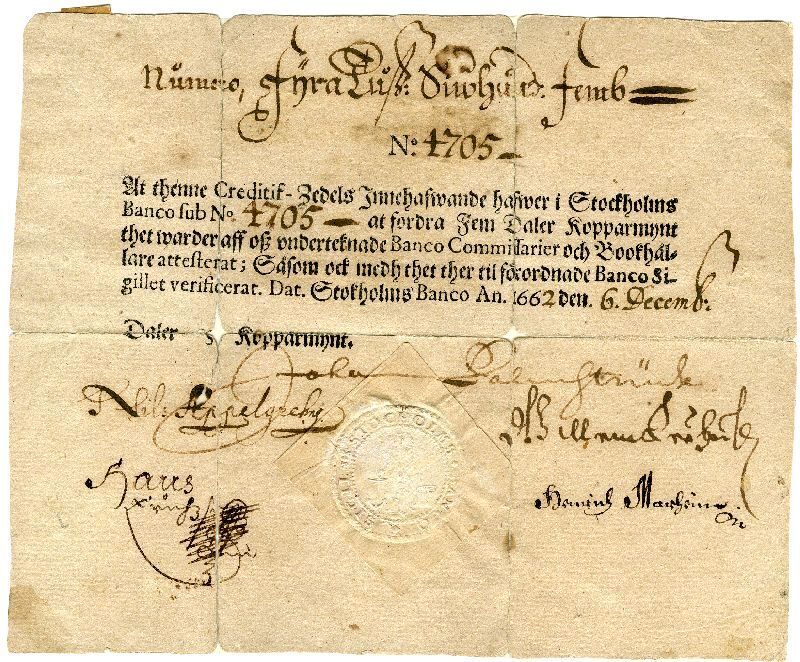 Numero, Fÿra Tus: Siuhund: femb
No. 4705
At thenne Creditif-Zedels Innehafwande hafwer i Stockholms
Banco sub No. 4705 at fordra Fem Daler Kopparmynt
thet warder aff oß vnderteknade Banco Commissarier och Bookhål-
lare attesterat; Såsom ock medh thet ther til förordnade Banco Si-
gillet verificerat. Dat. Stokholms Banco An. 1662 den. 6. Decemb:
Daler 5 Kopparmynt.
Johan Palmstruch
Nils Appelgreen
Hans
Hemich